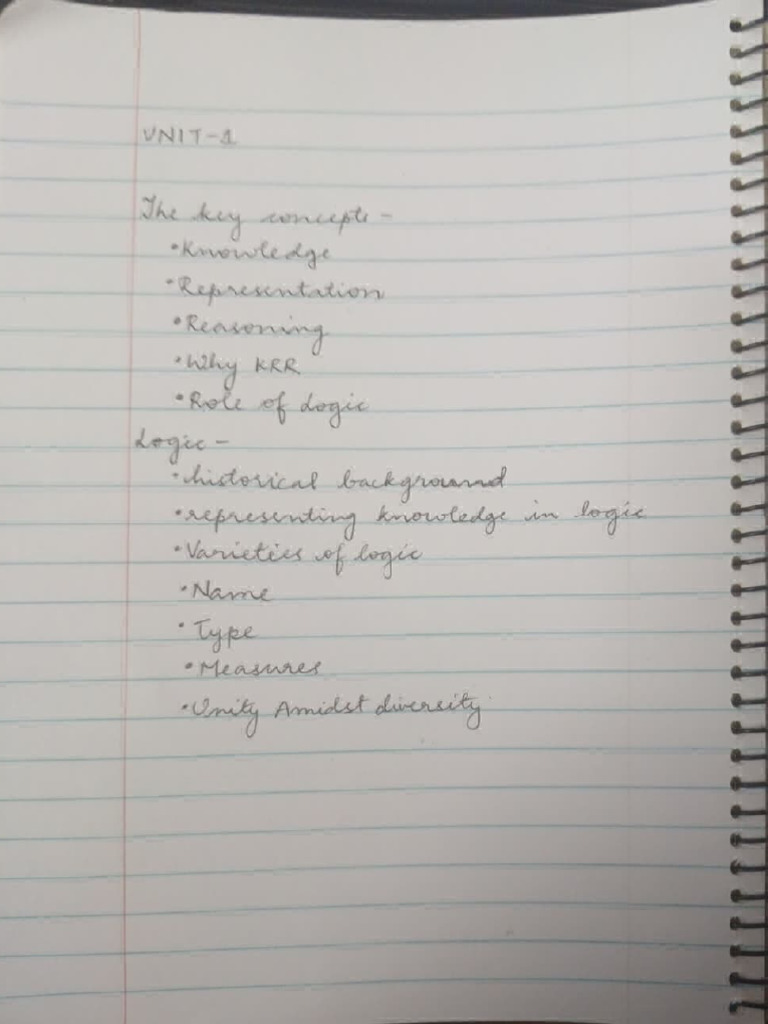 UNIT-1
The key concepts -
•Knowledge
•Representation
•Reasoning
•Why KRR
•Role of Logic
Logic -
•historical background
•representing knowledge in logic
•Varieties of logic
•Name
•Type
•Measures
•Unity Amidst diversity